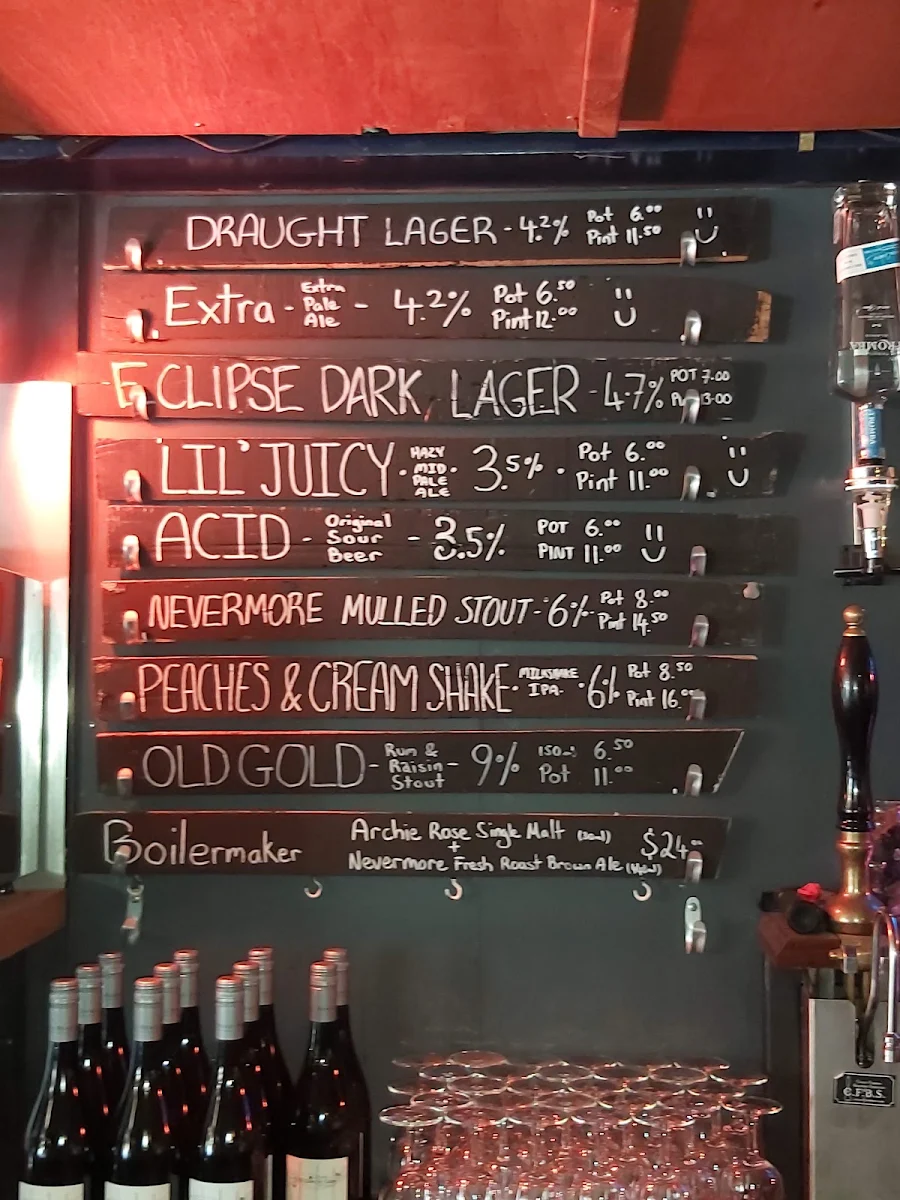 DRAUGHT LAGER - 4.2% Pot 6.00 Pint 11.50
Extra - Extra Pale Ale - 4.2% Pot 6.50 Pint 12.00
ECLIPSE DARK LAGER - 4.7% POT 7.00 13.00
LIL' JUICY · HAZY MID PALE ALE · 3.5% · Pot 6.00 Pint 11.00
ACID - Original Sour Beer - 3.5% POT 6.00 PINT 11.00
NEVERMORE MULLED STOUT - 6% - Pot 8.00 Pint 14.50
PEACHES & CREAM SHAKE · MILKSHAKE IPA · 6% Pot 8.50 Pint 16.00
OLD GOLD - Rum & Raisin Stout - 9% 150ml 6.50 Pot 11.00
Boilermaker Archie Rose Single Malt (30ml) + Nevermore Fresh Roast Brown Ale $24.00
C.F.B.S.